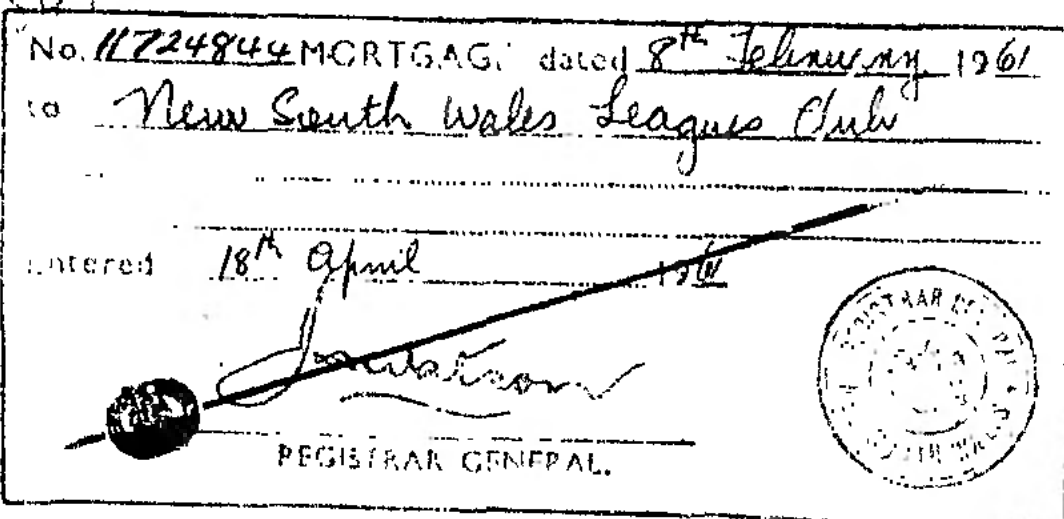 No. H724844 MORTGAGE dated 8th February 1961
to New South Wales Leagues Club
Entered 18th April 1961
REGISTRAR GENERAL.
REGISTRAR GENERAL
NEW SOUTH WALES